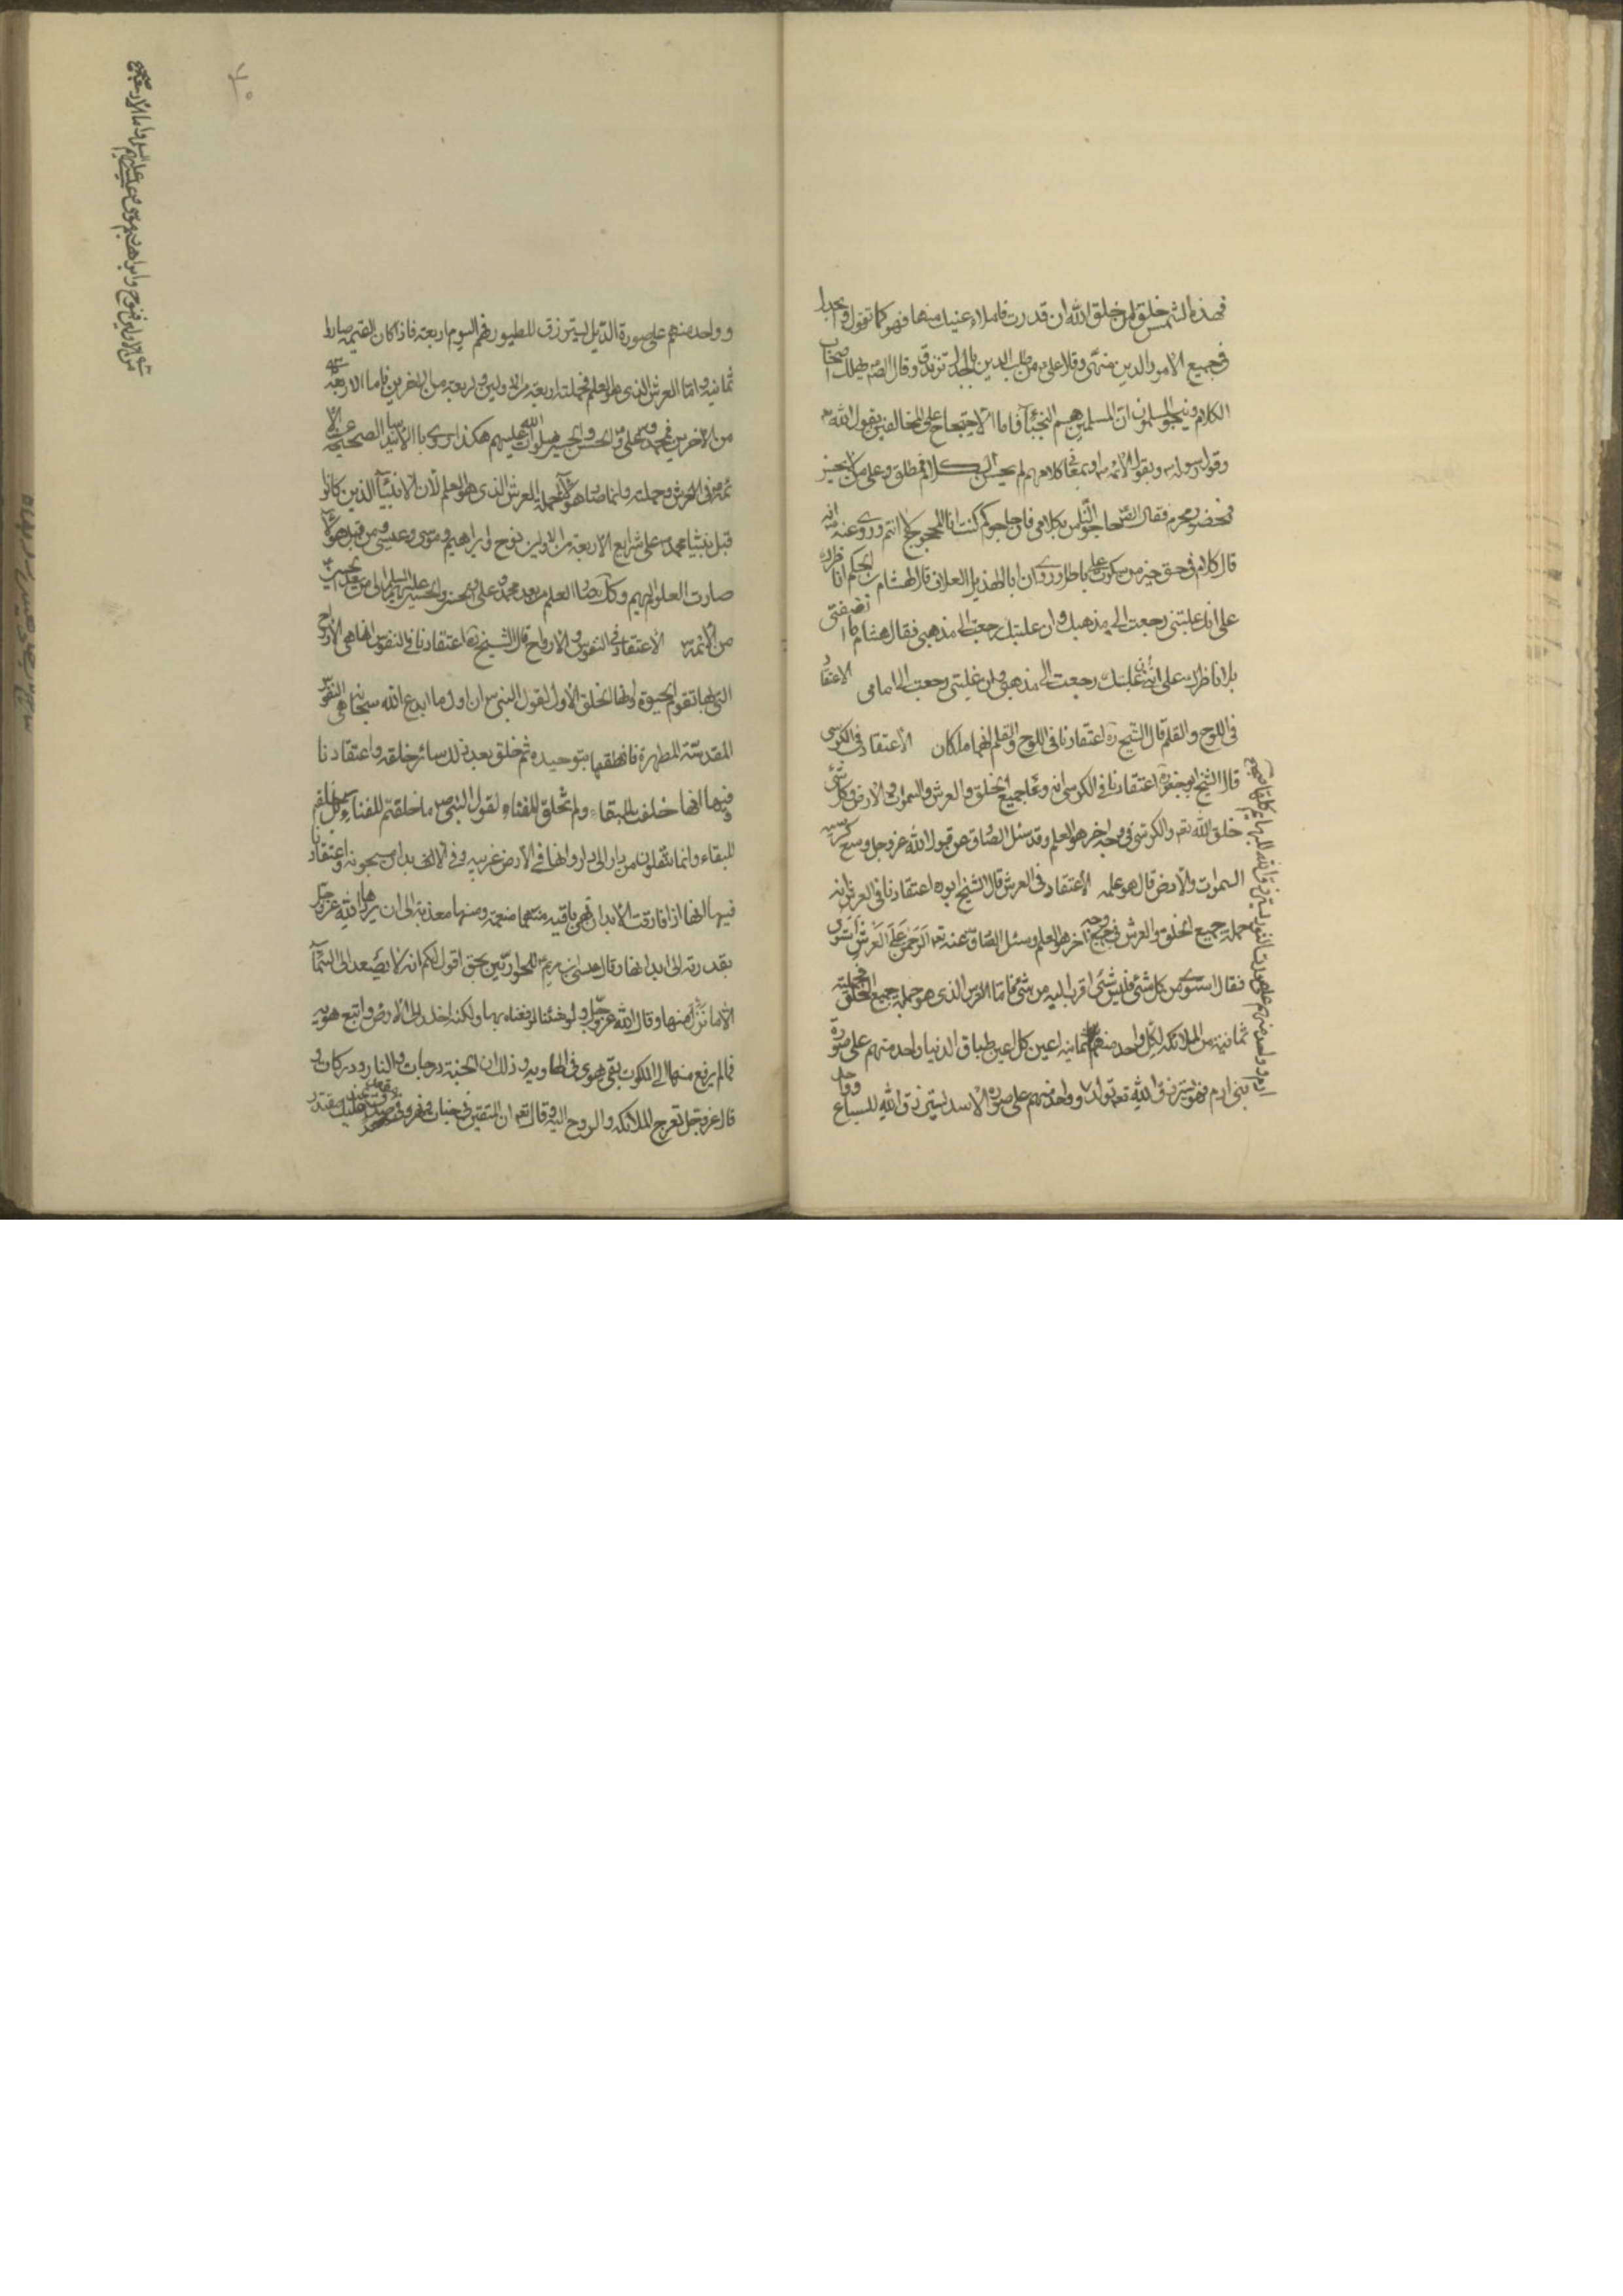 فهذه الشمس خلق من خلق الله ان قدرت فاملاء عينيك منها فهو كما تقول والجدل
فى جميع الامور والدين منهى وقال على من طلب الدين بالجدل تزندق وقال الصادق يهلك اصحاب
الكلام وينجو المسلمون ان المسلمين هم النجباء فاما الاحتجاج على المخالفين بقول الله
وقول رسوله وبقول الائمة او بمعانى كلامهم لمن يحسن الكلام فمطلق وعلى من لا يحسن
فمحضور محرم فقال الصادق حاجوا الناس بكلامى فان حاجوكم كنت انا المحجوج لا انتم وروى عنه انه
قال كلام فى حق خير من سكوت على باطل وروى ان ابا الهذيل العلاف قال لهشام بن الحكم اناظرك
على انك ان غلبتنى رجعت الى مذهبك وان غلبتك رجعت الى مذهبى فقال هشام ما انصفتنى
بل اناظرك على انى ان غلبتك رجعت الى مذهبى وان غلبتنى رجعت الى امامى الاعتقاد
فى اللوح والقلم قال الشيخ ره اعتقادنا فى اللوح والقلم انهما ملكان الاعتقاد فى الكرسى
قال الشيخ ابو جعفر ره اعتقادنا فى الكرسى انه وعاء جميع الخلق والعرش والسموات والارض وكل شئ
خلق الله تعم والكرسى فى وجه اخر هو العلم وقد سئل الصادق عن قول الله عز وجل وسع كرسيه
السموات والارض قال هو علمه الاعتقاد فى العرش قال الشيخ ابو ره اعتقادنا فى العرش انه
حملة جميع الخلق والعرش فى وجه آخر هو العلم وسئل الصادق عنه تعم الرحمن على العرش استوى
فقال استوى من كل شئ فليس شئ اقرب اليه من شئ فاما العرش الذى هو حملة جميع الخلق فحملته
ثمانية من الملائكة لكل واحد منهم ثمانية اعين كل عين طباق الدنيا واحد منهم على صورة
بنى ادم فهو يسترزق الله تعم لولد وواحد منهم على صورة الاسد يسترزق الله للسباع وواحد
ادم وواحد منهم على صورة الثور يسترزق الله للبهائم كلها
وواحد منهم على صورة الديك يسترزق للطيور فهم اليوم اربعة فاذا كان القيمة صاروا
ثمانية واما العرش الذى هو العلم فحملته اربعة من الاولين واربعة من الاخرين فاما الاربعة
من الاخرين فمحمد وعلى والحسن والحسين صلوات الله عليهم هكذا روى بالاسانيد الصحيحة عن الائمة
فى العرش وحملته وانما صار هؤلاء حملة العرش الذى هو العلم لان الانبياء الذين كانوا
قبل نبينا محمد على شرايع الاربعة من الاولين نوح وابراهيم وموسى وعيسى ومن قبل هؤلاء
صارت العلوم اليهم وكذلك صار العلم من بعد محمد وعلى والحسن والحسين عليهم السلام الى من بعد الحسين
من الائمة الاعتقاد فى النفوس والارواح قال الشيخ ره اعتقادنا فى النفوس انها هى الارواح
التى بها تقوم الحيوة وانها الخلق الاول لقول النبى ان اول ما ابدع الله سبحانه هى النفوس
المقدسة المطهرة فانطقها بتوحيده ثم خلق بعد ذلك سائر خلقه واعتقادنا
فيها انها خلقت للبقاء ولم تخلق للفناء لقول النبى ما خلقتم للفناء بل خلقتم
للبقاء وانما تنقلون من دار الى دار وانها فى الارض غريبة وفى الابدان مسجونة واعتقادنا
فيها انها اذا فارقت الابدان فهى باقية منها منعمة ومنها معذبة الى ان يردها الله عز وجل
بقدرته الى ابدانها وقال عيسى بن مريم للحواريين بحق اقول لكم انه لا يصعد الى السماء
الا ما نزل منها وقال الله عز وجل ولو شئنا لرفعناه بها ولكنه اخلد الى الارض واتبع هويه
فما لم يرفع منها الى الملكوت بقى يهوى فى الهاوية وذلك ان الجنة درجات والنار دركات و
قال عز وجل تعرج الملائكة والروح اليه وقال تعم ان المتقين فى جنات ونهر فى مقعد صدق عند مليك مقتدر
من الاولين فنوح وابراهيم وموسى وعيسى عليهم السلام واما الاربعة
٧٠